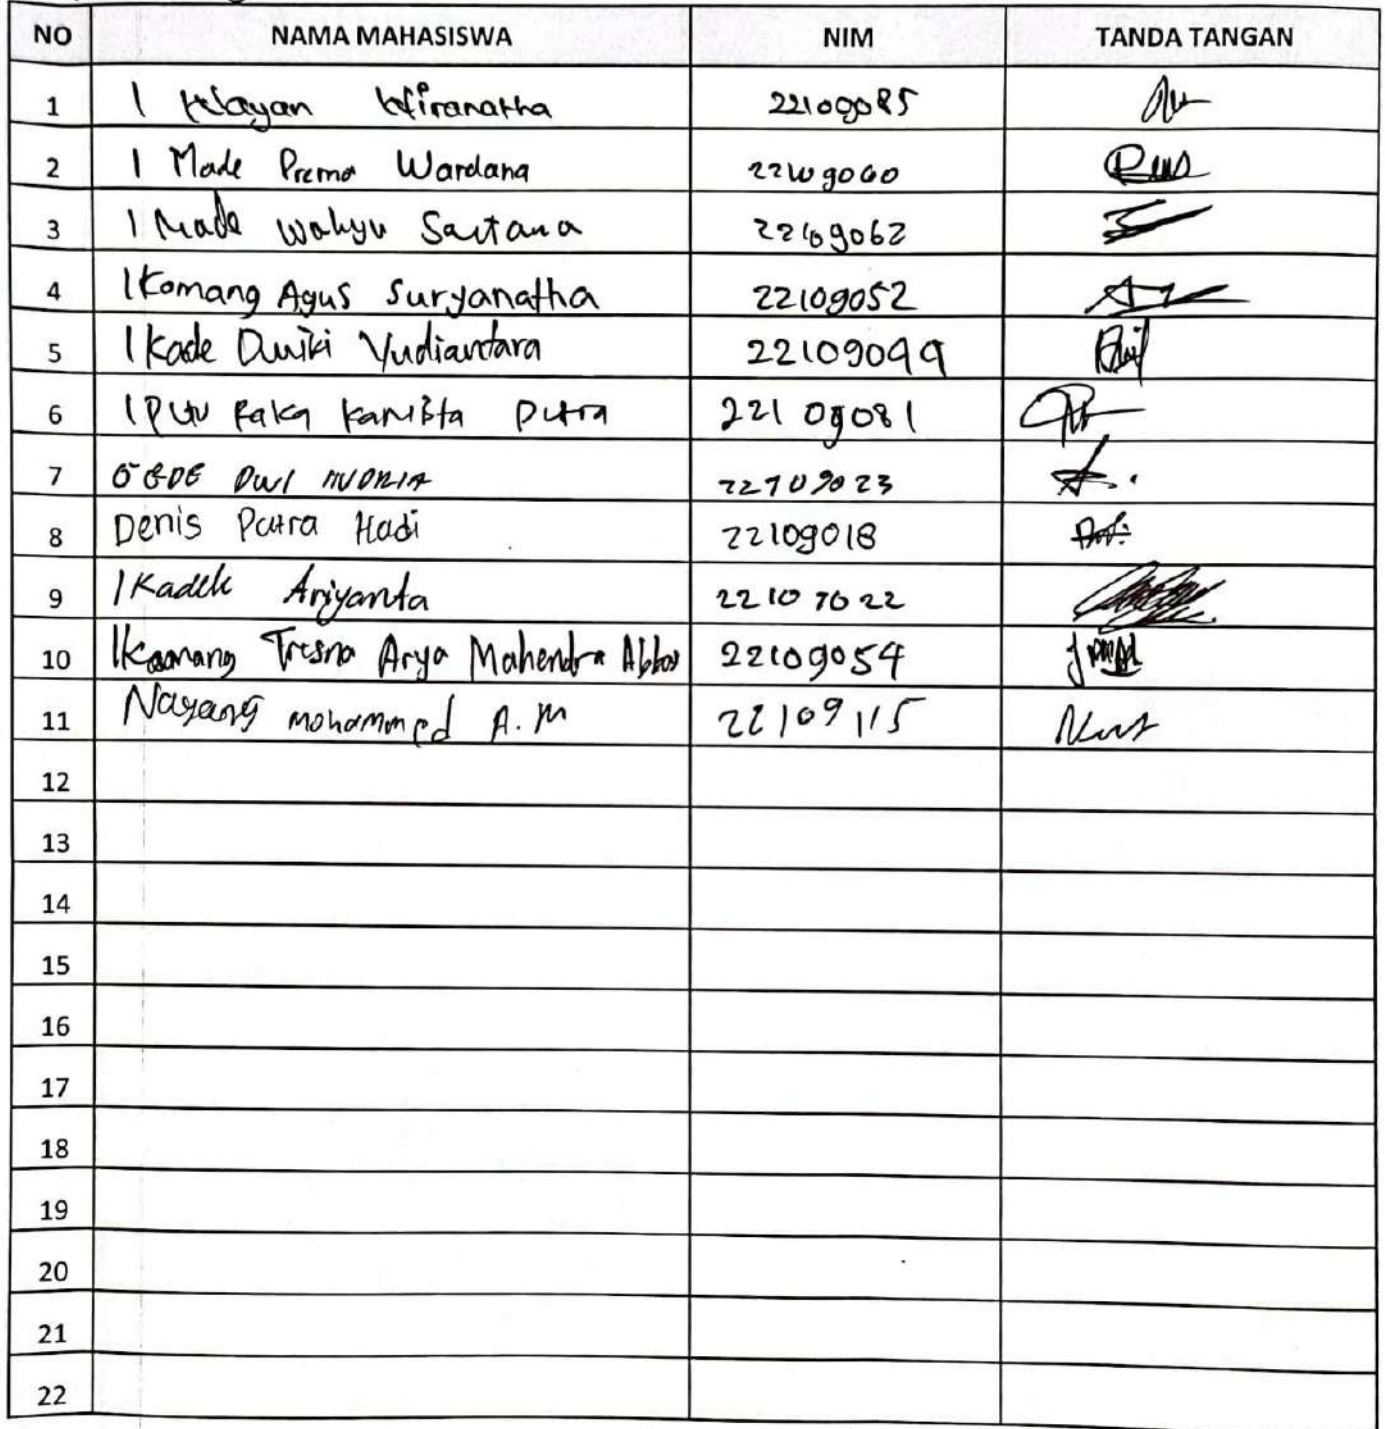 NO NAMA MAHASISWA NIM TANDA TANGAN
1 I Wayan Wiranatha 22109085
2 I Made Prema Wardana 22109060
3 I Made Wahyu Sartana 22109062
4 I Komang Agus Suryanatha 22109052
5 I Kade Dwiki Yudiantara 22109099
6 I Putu Raka Putra 22109081
7 GEDE DWI 22109023
8 Denis Putra Hadi 22109018
9 I Kadek Ariyanta 22109022
10 I Komang Tresna Arya Mahendra 22109054
11 Nayang Mohammed A. M 22109115
12
13
14
15
16
17
18
19
20
21
22